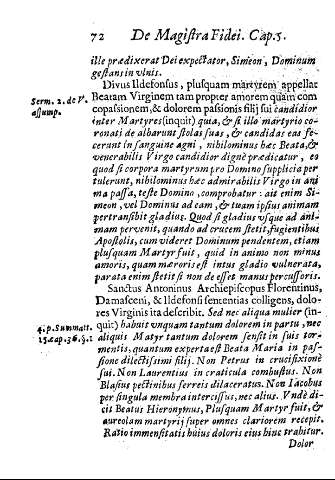 72 De Magistra Fidei. Cap.5.
ille prædixerat Dei expectator, Simeon, Dominum
gestans in vlnis.
Divus Ildefonsus, plusquam martyrem appellat
Serm. 2. de V.
assump.
Beatam Virginem tam propter amorem quam com
copassionem, & dolorem passionis filij sui candidior
inter Martyres (inquit) quia, & si illo martyrio co-
ronati de albarunt stolas suas, & candidas eas fe-
cerunt in sanguine agni, nihilominus hæc Beata, &
venerabilis Virgo candidior dignè prædicatur, eo
quod si corpora martyrum pro Domino supplicia per
tulerunt, nihilominus hæc admirabilis Virgo in ani
ma passa, teste Domino, comprobatur: ait enim Si-
meon, vel Dominus ad eam, & tuam ipsius animam
pertransibit gladius. Quod si gladius vsque ad ani-
mam pervenit, quando ad crucem stetit, fugientibus
Apostolis, cum videret Dominum pendentem, etiam
plusquam Martyr fuit, quid in animo non minus
amoris, quam mæroris est intus gladio vulnerata,
parata enim stetit si non de esset manus percussoris.
Sanctus Antoninus Archiepiscopus Florentinus,
Damasceni, & Ildefonsi sententias colligens, dolo-
res Virginis ita describit. Sed nec aliqua mulier (in-
4. p. Summatt.
15. cap. 36. §. 2
quit) habuit unquam tantum dolorem in partu, nec
aliquis Matyr tantum dolorem sensit in suis tor-
mentis, quantum experta est Beata Maria in pas-
sione dilectissimi filij. Non Petrus in crucifixione
sui. Non Laurentius in craticula combustus. Non
Blasius pectinibus ferreis dilaceratus. Non Iacobus
per singula membra intercissus, nec alius. Vndè di-
cit Beatus Hieronymus, Plusquam Martyr fuit, &
aureolam martyrij super omnes clariorem recepit.
Ratio immensitatis huius doloris eius hinc trahitur.
Dolor